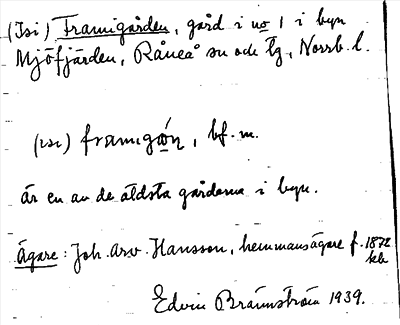 (Isi) Framigården, gård i no 1 i byn
Mjöfjärden, Råneå sn och tg, Norrb. l.
(isi) framigɷ́n, bf. m.
är en av de äldsta gårdarna i byn.
Ägare: Joh. Arv. Hansson, hemmansägare f. 1872
Edvin Brännström 1939.